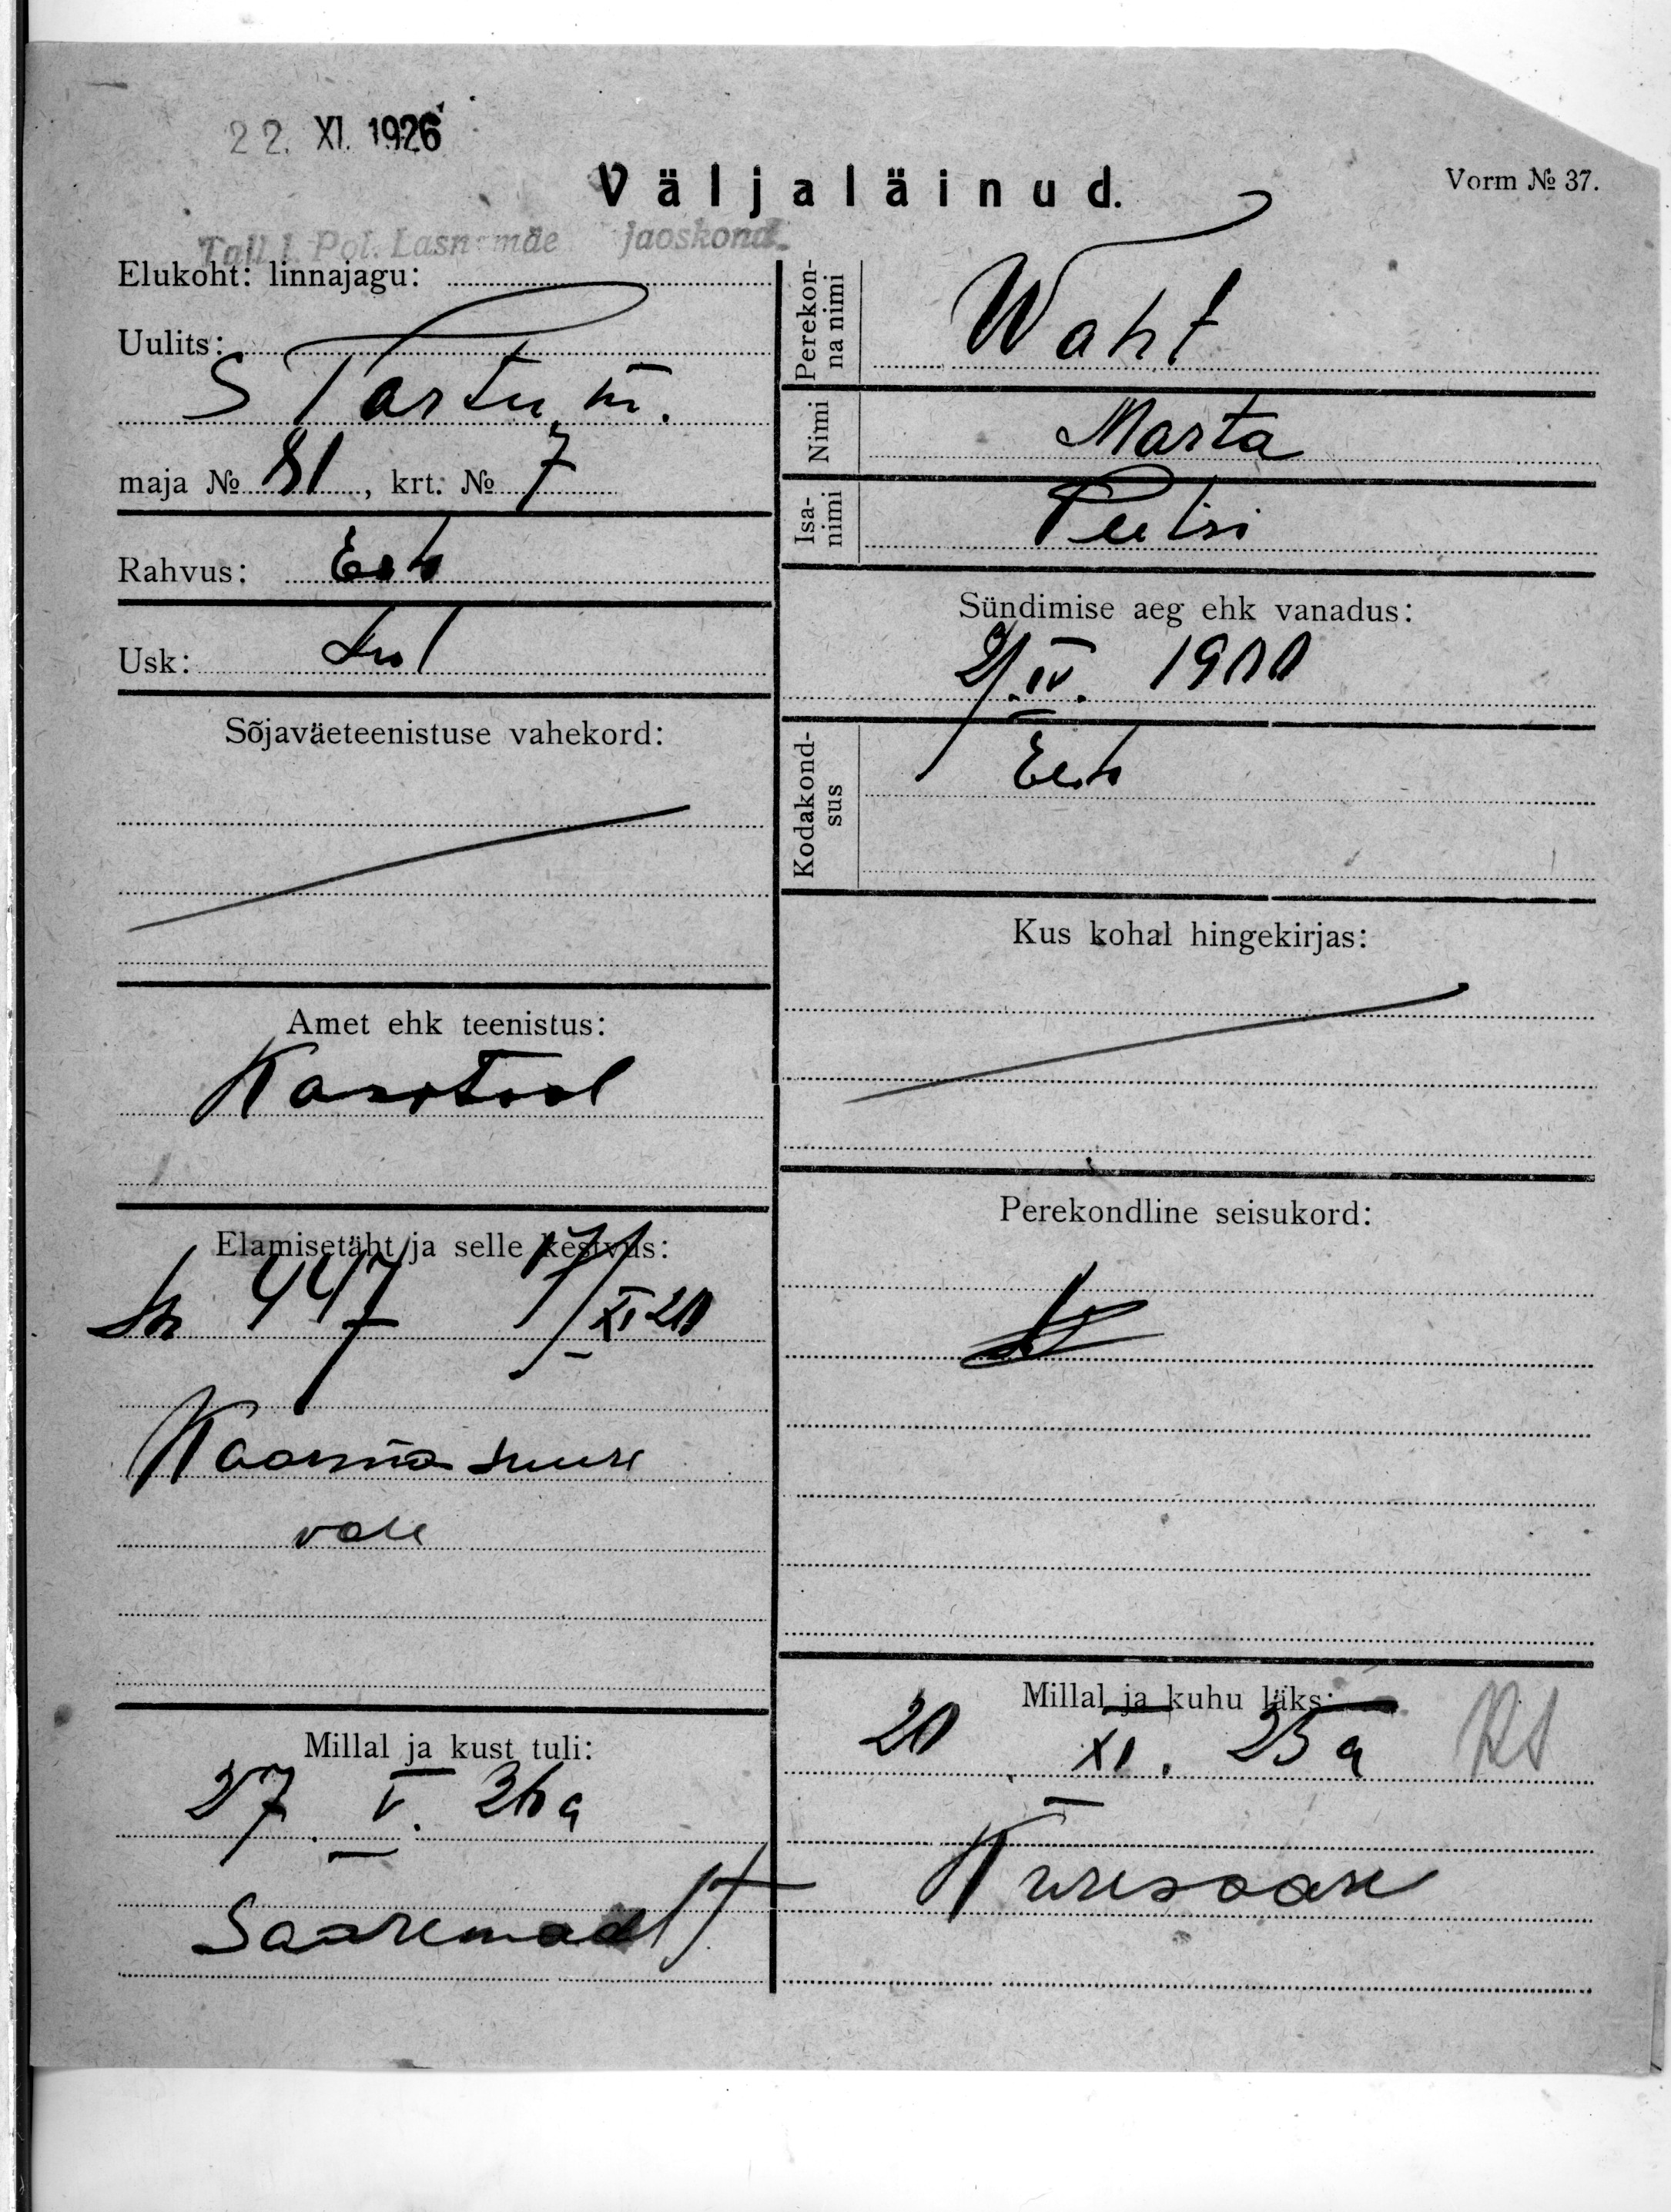 22. XI. 1926
Väljaläinud.
Vorm № 37.
Tall. l. Pol. Lasnamäe jaoskond.
Elukoht: linnajagu:
Uulits:
S Tartu m.
maja № 81, krt. № 7
Rahvus: Eesti
Usk: Lut
Sõjaväeteenistuse vahekord:
Amet ehk teenistus:
Elamisetäht ja selle kestvus:
447 17/XI 20
Kaarma Suure
valla
Millal ja kust tuli:
27. V. 26 a
Saaremaalt
Perekon-
na nimi
Waht
Nimi
Marta
Isa-
nimi
Peetri
Sündimise aeg ehk vanadus:
2/IV. 1900
Kodakond-
sus
Eesti
Kus kohal hingekirjas:
Perekondline seisukord:
Millal ja kuhu läks:
20. XI. 25 a
Kuresaare